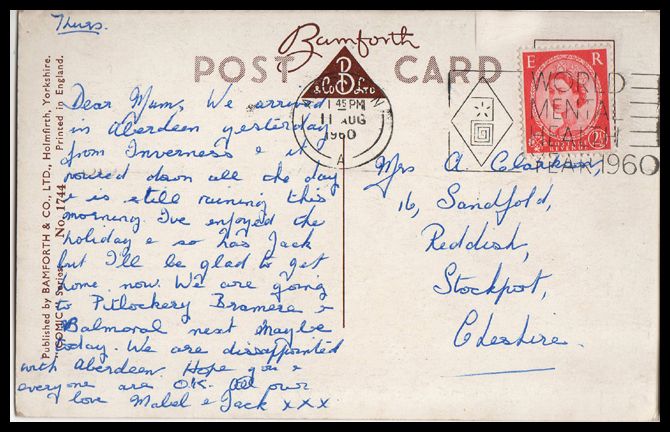 Thurs.
Bamforth
POST CARD
B
& Co LTD
Dear Mum, We arrived
in Aberdeen yesterday
from Inverness & it
poured down all the day
& is still raining this
morning. I've enjoyed the
holiday & so has Jack
but I'll be glad to get
home now. We are going
to Pitlockery Bramere &
Balmoral next maybe
today. We are dissappointed
with Aberdeen. Hope you &
everyone are O.K. All our
love Mabel & Jack xxx
Published by BAMFORTH & CO., LTD., Holmfirth, Yorkshire.
"COMIC" Series No. 1744 Printed in England.
1 45 PM
11 AUG
1960
A
E R
WORLD
MENTAL
HEALTH
YEAR 1960
Mrs A. Clarkson,
16, Sandfold,
Reddish,
Stockport,
Cheshire.